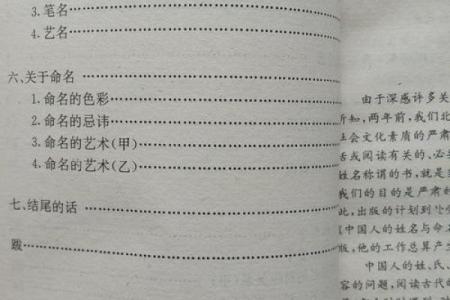 3.笔名
4.艺名
六、关于命名
1.命名的色彩
2.命名的忌讳
3.命名的艺术(甲)
4.命名的艺术(乙)
七、结尾的话
跋
由于深感许多关
所知,两年前,我们北
社会文化素质的严肃
活或阅读有关的、必
姓名称谓的书,就是
我们的目的是严肃的
此,出版的计划到
《中国人的姓名与命名
版,他的工作总算产
中国人的姓、氏、
容的问题,阅读古代的